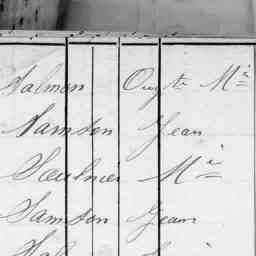 Salmon Oug.te M.ie
Samson Jean
Saulnier M.ie
Samson Jean